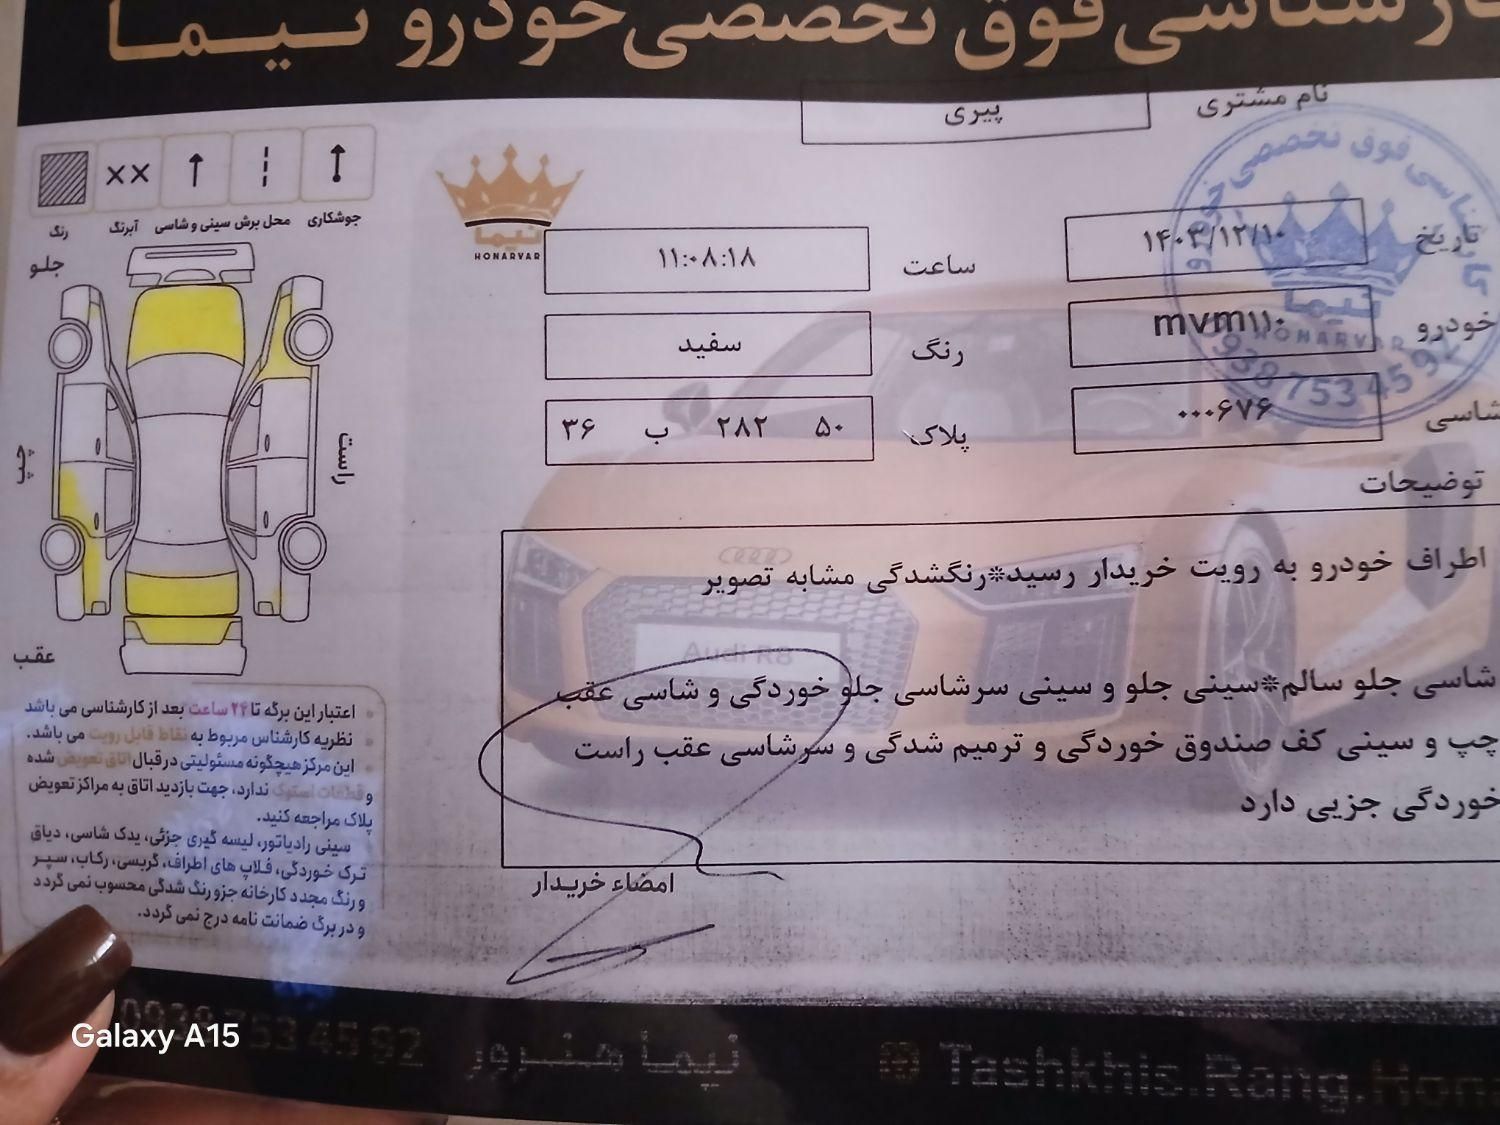 کارشناسی فوق تخصصی خودرو نیما
نام مشتری
پیری
تاریخ
۱۴۰۳/۱۲/۱۰
ساعت
۱۱:۰۸:۱۸
خودرو
mvm۱۱۰
رنگ
سفید
شاسی
۰۰۰۶۷۶
پلاک
۵۰ ۲۸۲ ب ۳۶
توضیحات
اطراف خودرو به رویت خریدار رسید*رنگشدگی مشابه تصویر
شاسی جلو سالم*سینی جلو و سینی سرشاسی جلو خوردگی و شاسی عقب
چپ و سینی کف صندوق خوردگی و ترمیم شدگی و سرشاسی عقب راست
خوردگی جزیی دارد
امضاء خریدار
کارشناسی فوق تخصصی خودرو
نیما
HONARVAR
09387534592
نیما
HONARVAR
Audi R8
جوشکاری
محل برش سینی و شاسی
آبرنگ
رنگ
جلو
راست
چپ
عقب
اعتبار این برگه تا ۲۴ ساعت بعد از کارشناسی می باشد
نظریه کارشناس مربوط به نقاط قابل رویت می باشد.
این مرکز هیچگونه مسئولیتی در قبال اتاق تعویض شده
و قطعات استوک ندارد، جهت بازدید اتاق به مراکز تعویض
پلاک مراجعه کنید.
سینی رادیاتور، لیسه گیری جزئی، یدک شاسی، دیاق
ترک خوردگی، فلاپ های اطراف، گریسی، رکاب، سپر
و رنگ مجدد کارخانه جزو رنگ شدگی محسوب نمی گردد
و در برگ ضمانت نامه درج نمی گردد.
0938 753 45 92
نیما هنرور
Tashkhis.Rang.Hona
Galaxy A15